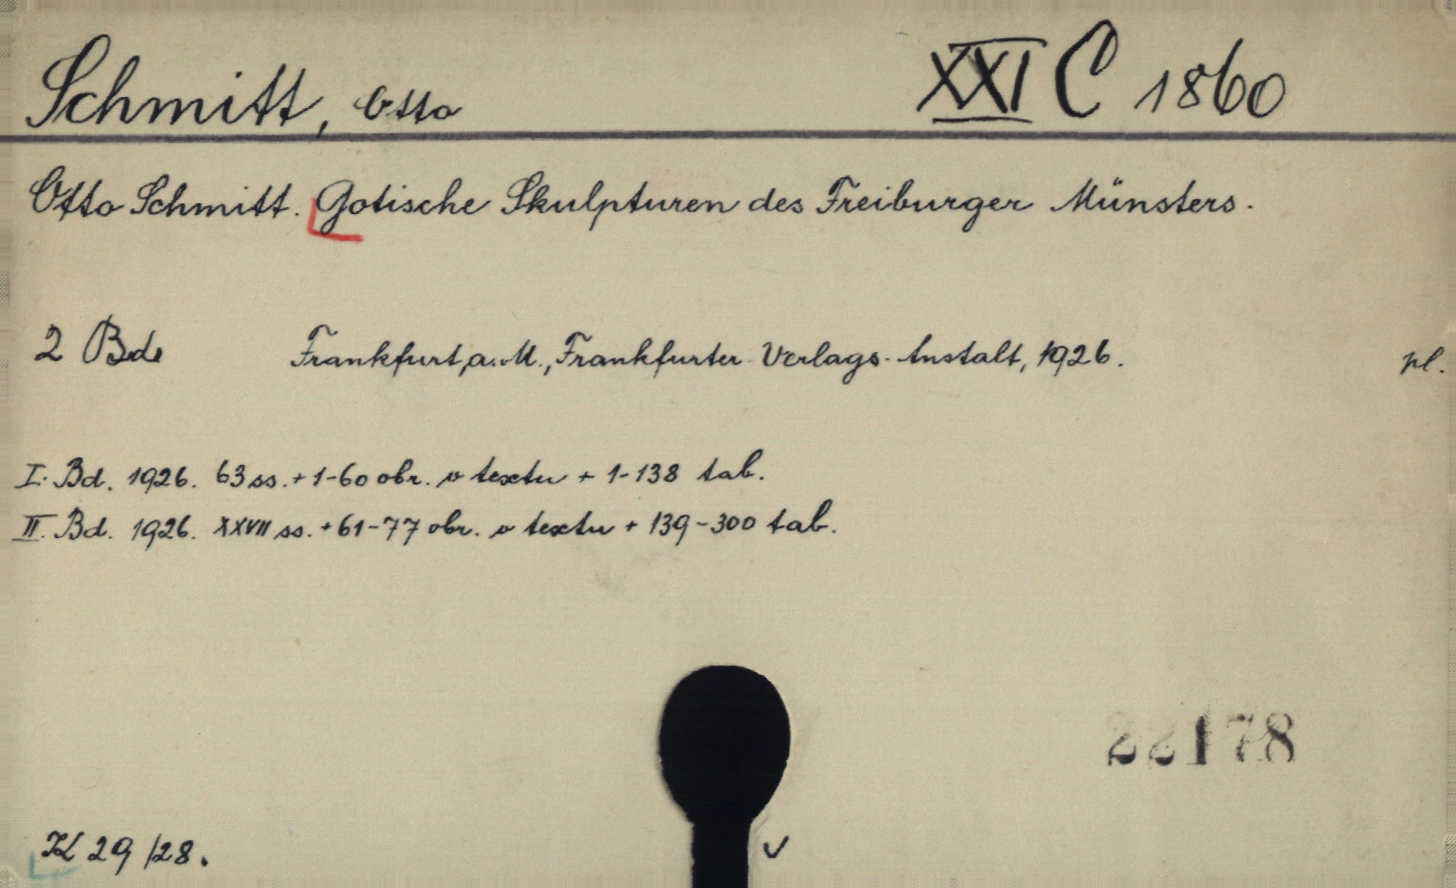 Schmitt, Otto
XXI C 1860
Otto Schmitt. Gotische Skulpturen des Freiburger Münsters.
2 Bde Frankfurt a. M., Frankfurter Verlags-Anstalt, 1926. pl.
I. Bd. 1926. 63 ss. + 1-60 obr. v textu + 1-138 tab.
II. Bd. 1926. XXVII ss. + 61-77 obr. v textu + 139-300 tab.
22178
29/28.